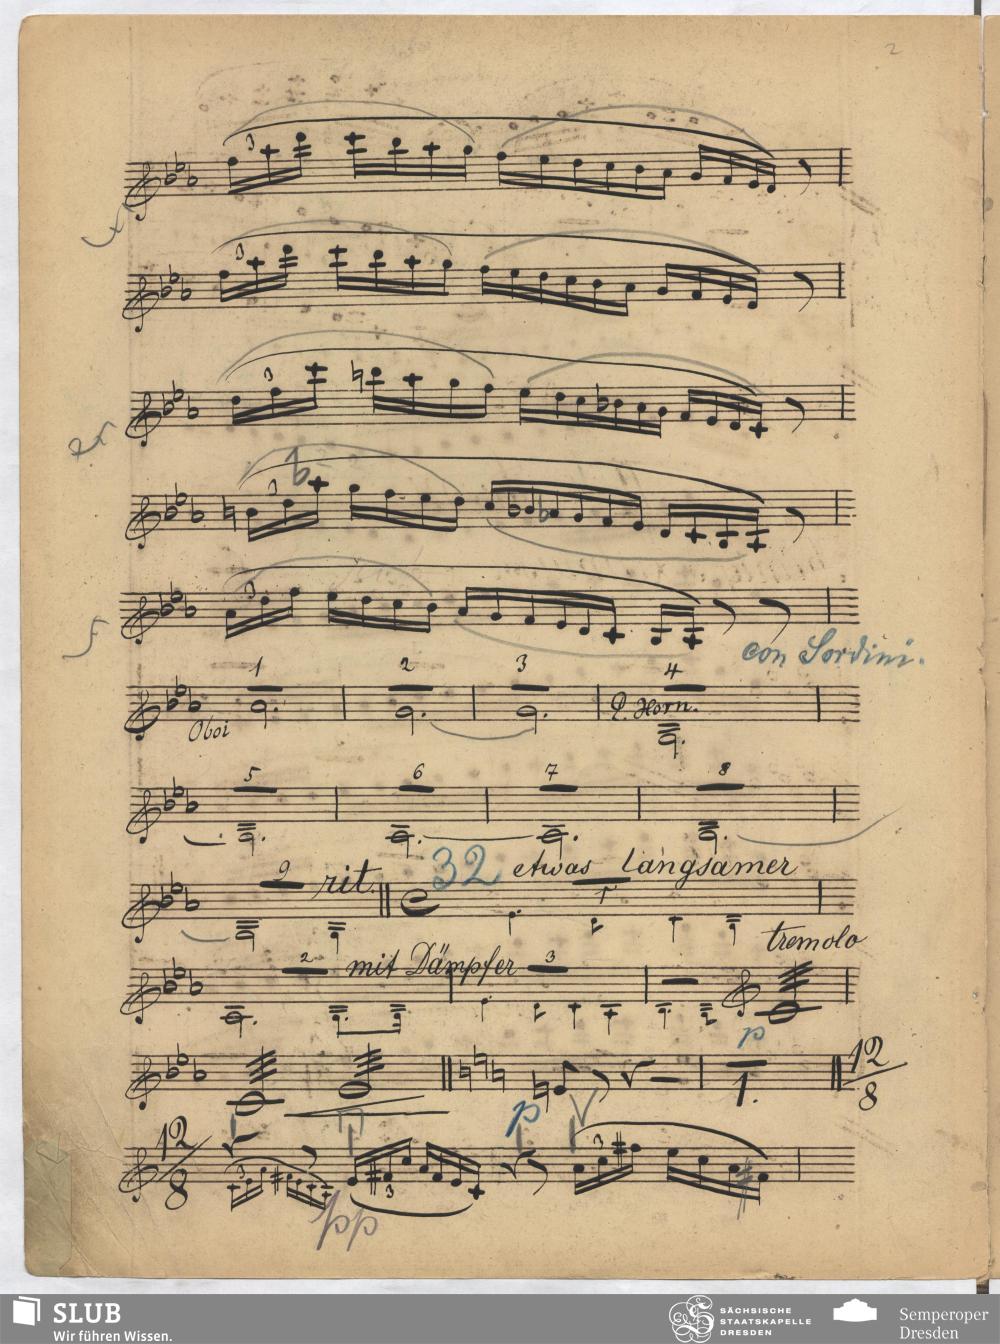 2
3
3
3
3
3
con Sordini.
1 2 3 4
Oboi
E. Horn.
5 6 7 8
9 rit. 32 etwas langsamer
1
tremolo
2 mit Dämpfer 3
p
12
8
1.
p
12
8
3 3 3
pp
SLUB
Wir führen Wissen.
SÄCHSISCHE
STAATSKAPELLE
DRESDEN
Semperoper
Dresden